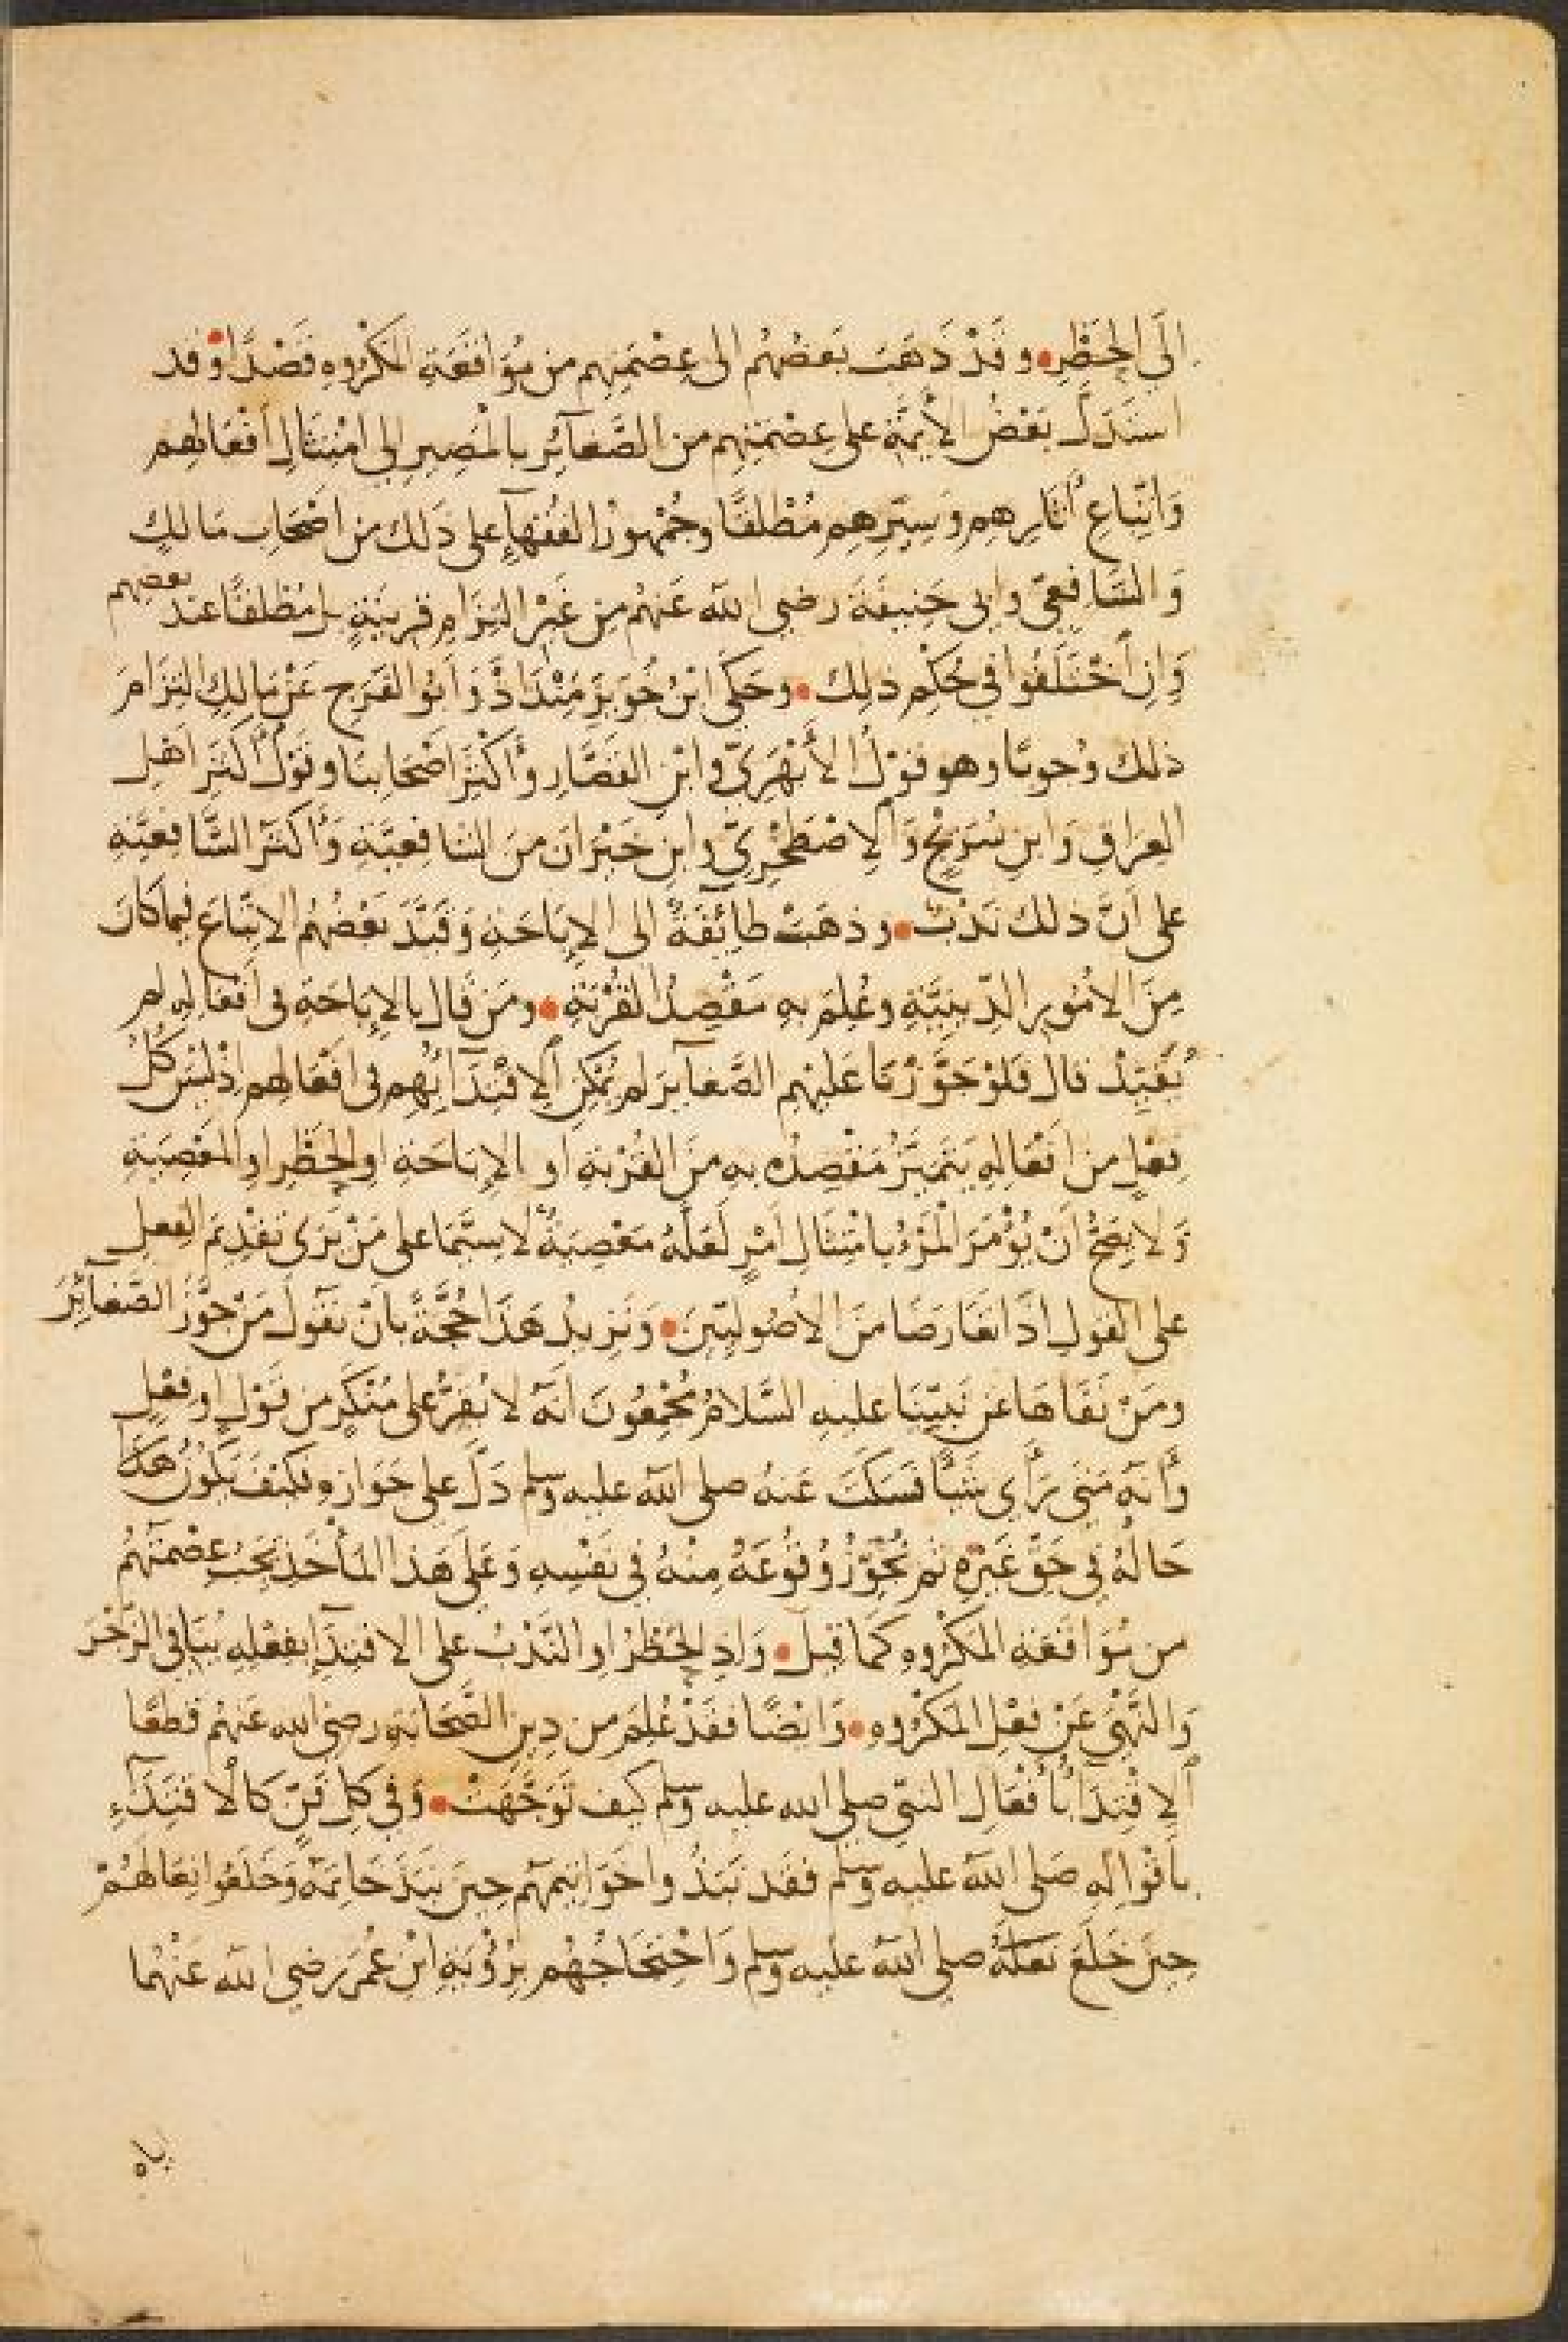 إلَى الحَظْرِ • وقَدْ ذَهَبَ بَعضُهُم الى عِصْمَتِهِم من مُوَاقَعَةِ المَكْرُوهِ قَصْدًا • وقد
اسْتَدَلَّ بَعْضُ الأَئِمَّةِ على عِصْمَتِهِم من الصَّغَآئِرِ بالمَصِيرِ إلى امْتِثَالِ أَفْعَالِهِم
وَاتِّبَاعِ آثَارِهِم وَسِيَرِهِم مُطْلَقًا وجُمْهُورُ الفُقَهآءِ على ذَلك من اصْحَابِ مَالكٍ
وَالشَّافِعِيّ وابى حَنِيفَةَ رضى الله عَنهُم مِن غَيْرِ التِزَامِ قَرِينَةٍ بل مُطْلَقًا عند بعضِهم
وَإنِ اخْتَلَفُوا في حُكْمِ ذلِكَ • وحَكَى ابْنُ خُوَيْزِ مَنْدَاذْ وَأبُو الفَرَجِ عَنْ مَالِكٍ التِزَامَ
ذلك وُجوبًا وهو قوْلُ الأَبْهَرِيّ وابْنِ القَصَّارِ وأَكْثَرِ اصْحَابِنَا وقَوْلُ أَكْثَرِ اَهْلِ
العِرَاقِ وَابنِ سُرَيْجٍ وَالاِصْطَخْرِيّ وابنِ خَيْرَانَ منَ الشافِعِيَّةِ وَأَكْثَرُ الشَّافِعِيَّةِ
على أَنَّ ذلك نَدْبٌ • وذهَبَتْ طآئِفَةٌ الى الإبَاحَةِ وَقَيَّدَ بَعْضُهُم الاتّبَاعَ فيما كانَ
مِنَ الأُمُورِ الدِّينِيَّةِ وعُلِمَ بِهِ مَقْصِدُ القُرْبَةِ • ومَن قَال بالإبَاحَةِ فى أفعَالِهِ لم
يُقَيِّدْ قال فَلَوْ جَوَّزْنَا عَليْهِم الصَّغَآئِرَ لم يُمْكِنِ الاِقْتِدَآءُ بِهم فى اَفْعَالِهِم إذْ ليْسَ كُلُّ
فِعْلٍ من اَفْعَالِهِ يَتَمَيَّزُ مَقْصِدُهُ به منَ القُرْبَةِ أو الإبَاحَةِ اوِ الحَظْرِ اوِ المَعْصِيَةِ
وَلا يَصِحُّ أَنْ يُؤْمَرَ المَرْءُ بامْتِثَالِ أَمْرٍ لَعَلَّهُ مَعْصِيَةٌ لاَ سِيَّمَا على مَنْ يَرَى تقْدِيمَ الفِعلِ
على القولِ اذَا تَعَارَضَا منَ الأُصُولِيّينَ • وَنَزِيدُ هَذَا حُجَّةً بأَنْ نَقُولَ مَنْ جوَّزَ الصَّغَآئِرَ
ومَنْ نَفَاهَا عن نَبِيّنَا عليه السَّلامُ مُجْمِعُونَ أنَّهُ لا يُقِرُّ على مُنْكَرٍ من قَوْلٍ او فِعْلٍ
وَأَنّه مَتى رَأَى شَيْئًا فَسَكَتَ عَنهُ صلى الله عليه وسلم دَلَّ على جَوَازِهِ فكَيْفَ يَكُونُ هَذَا
حَالُهُ في حَقّ غَيْرِهِ ثم نُجَوِّزُ وُقُوعَهُ مِنْهُ في نَفْسِهِ وَعَلَى هَذا المَأْخَذِ تَجِبُ عِصْمَتُهُم
من مُوَاقَعَةِ المَكْرُوهِ كَما قِيلَ • وَاذِ الحَظْرُ اوِ النَّدْبُ على الاقتِدَآءِ بفِعْلِهِ يُنَافى الزَّجْرَ
وَالنَّهْيَ عَنْ فِعْلِ المَكْرُوهِ • وَايْضًا فقَدْ عُلِمَ من دِينِ الصَّحَابَةِ رضى الله عَنهُم قطعًا
الاِقْتِدَآءُ بأَفْعَالِ النبيّ صلى الله عليه وسلم كيف تَوَجَّهَتْ • وَفي كلِّ فَنّ كالاقتِدَآءِ
بأَقْوَالِهِ صَلى الله عليه وسلم فقَد نَبَذُوا خَوَاتِيمَهُم حِينَ نَبَذَ خَاتَمَهُ وَخَلَعُوا نِعَالَهُمْ
حِينَ خَلَعَ نَعْلَهُ صلى الله عليه وسلم وَاحْتِجَاجُهُم بِرُؤْيَةِ ابْنِ عُمَرَ رضى الله عَنْهُما